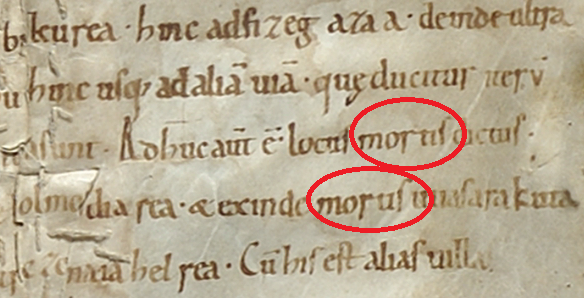 kurea · hinc adfizeg azaa · deinde ultra
hinc usq; ad aliā uiā · que ducitur
sunt · Adhuc aut̄ ē locus mortis dictus ·
olmodia rea · & exinde mortis uuasara kuta
zenaia hel rea · Cū his est alias uilla